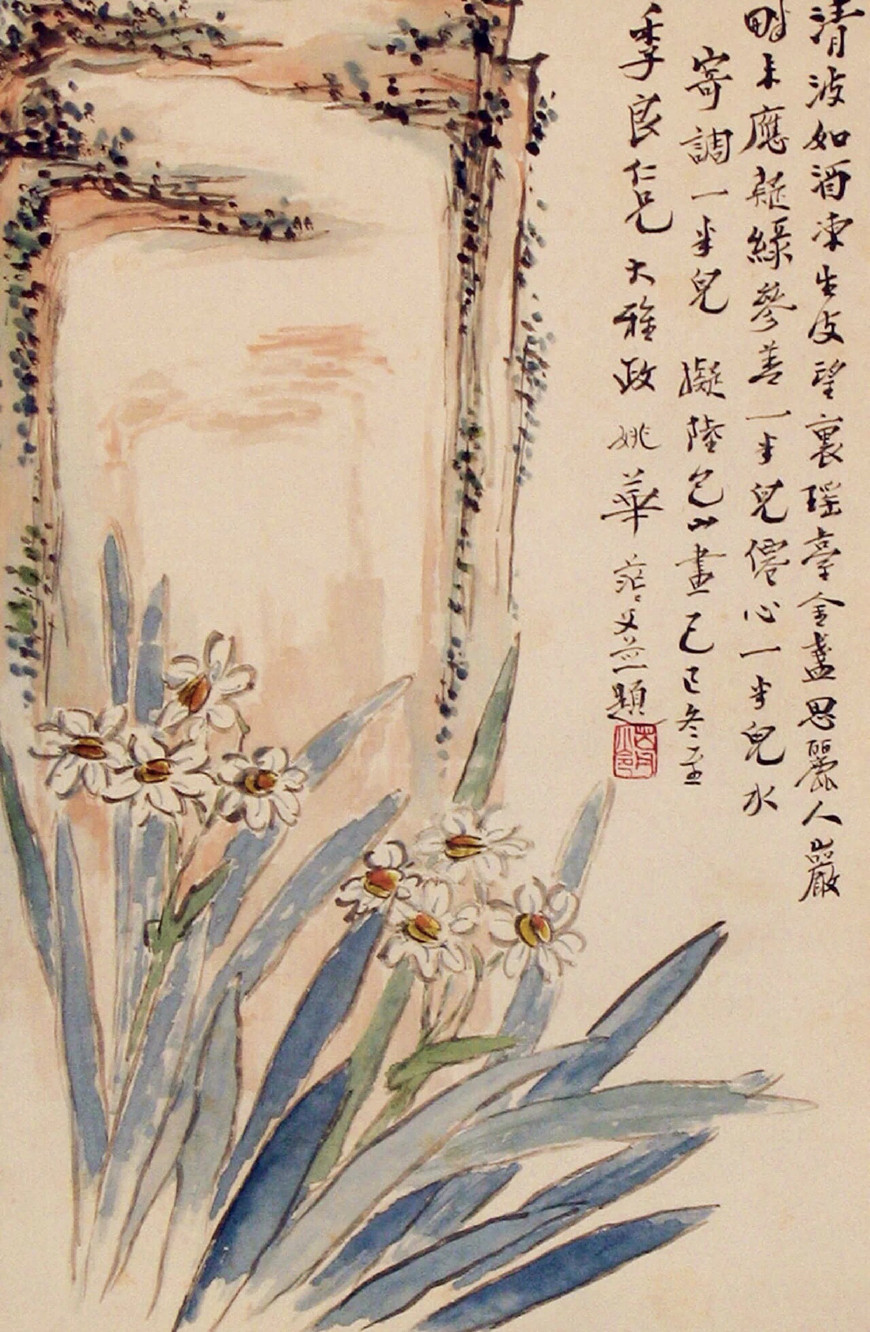 清波如酒凍生皮望裏瑤臺金盞思麗人巖
畔未應疑綠參差一半兒僊心一半兒水
寄調一半兒 擬陸包山畫己巳冬至
季良仁兄大雅政 姚華茫父並題